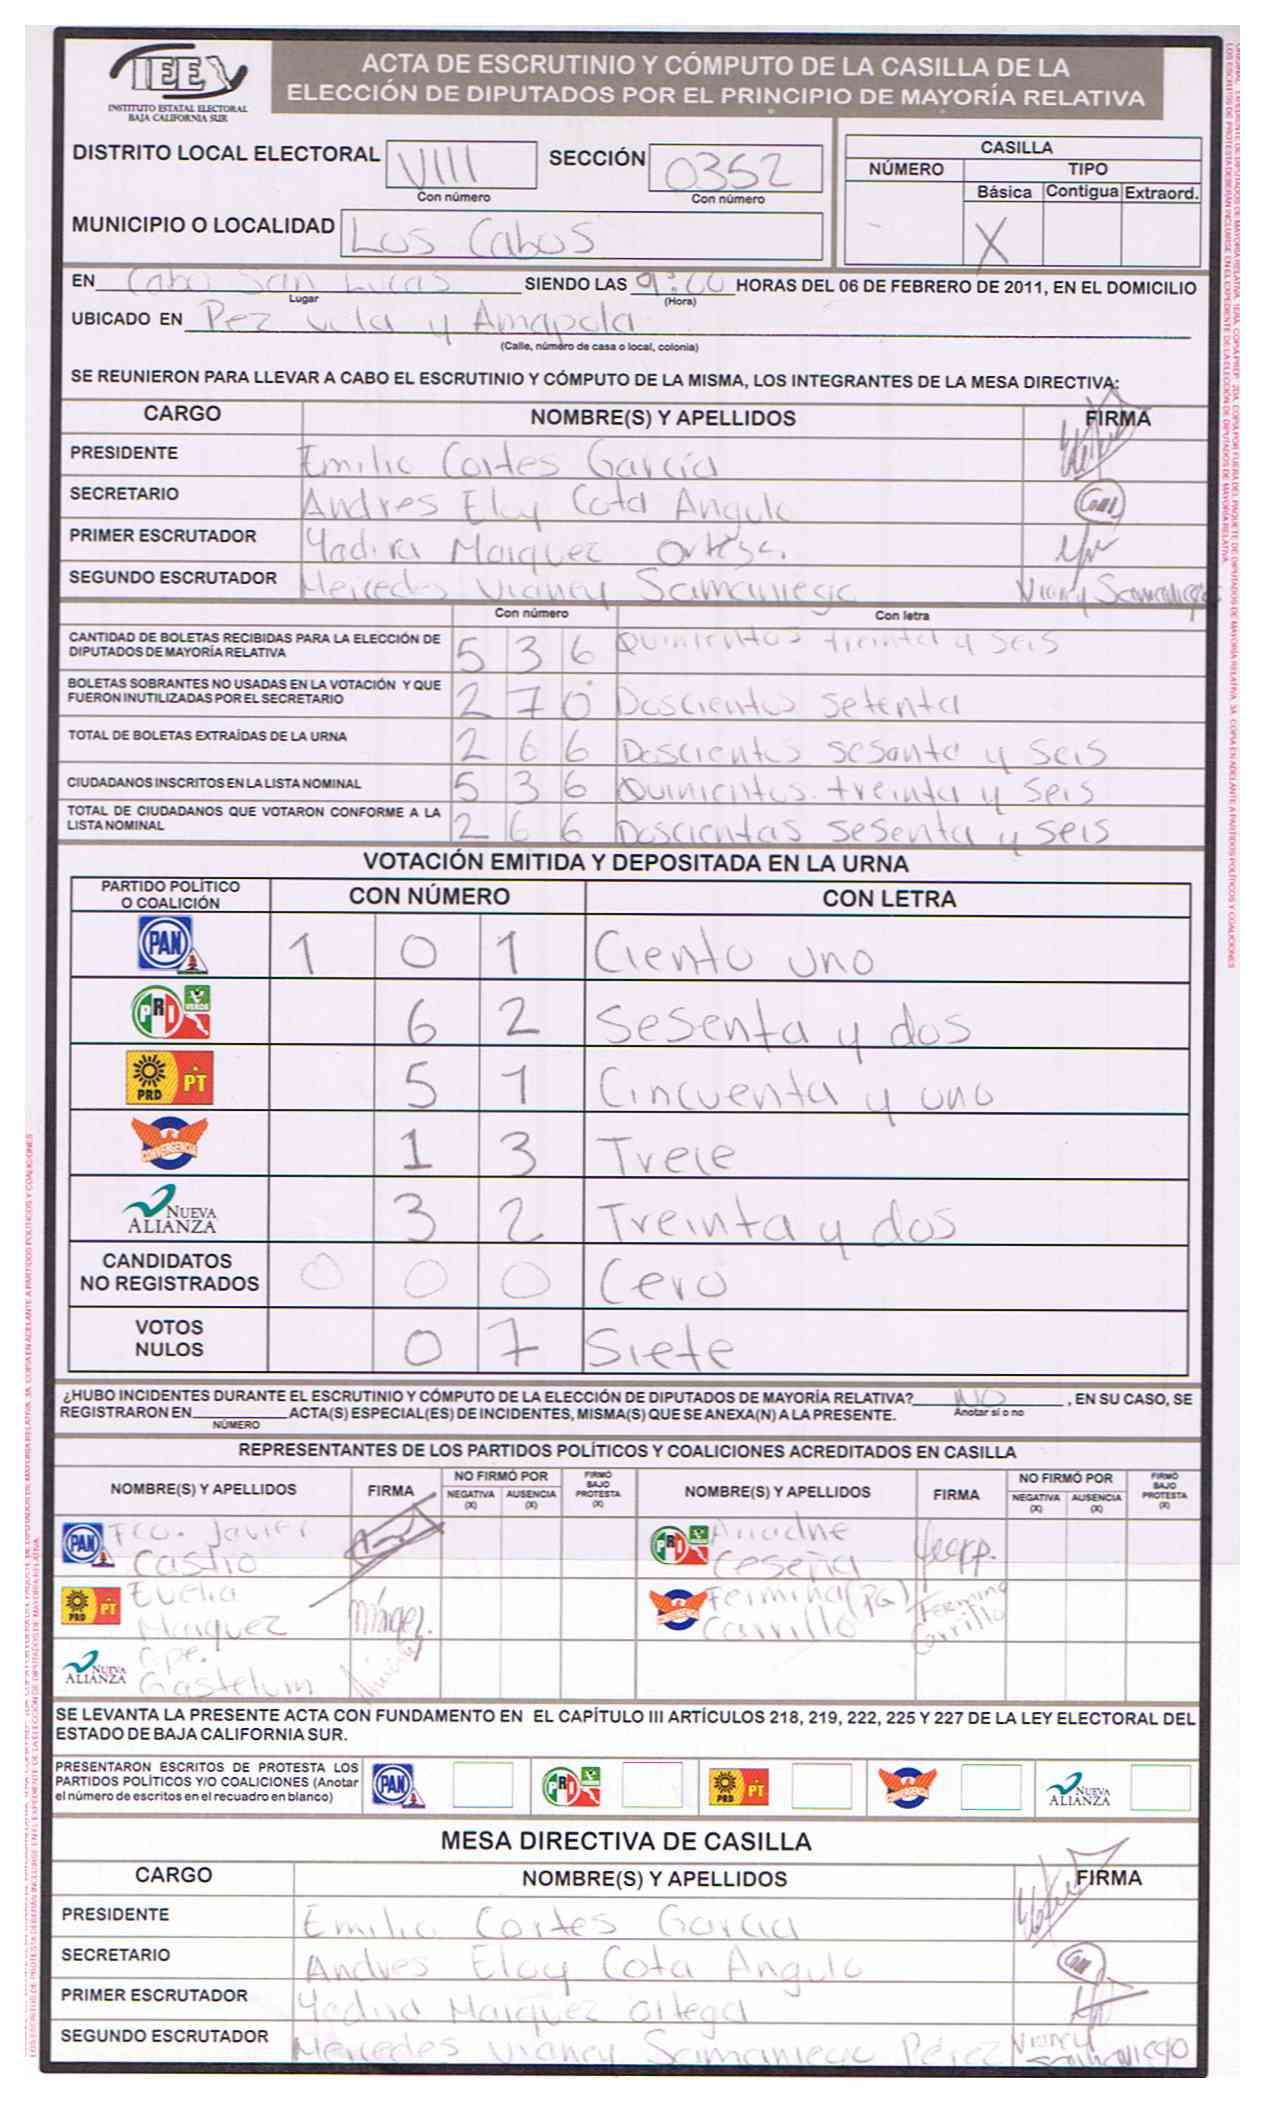 IEE
INSTITUTO ESTATAL ELECTORAL
BAJA CALIFORNIA SUR
ACTA DE ESCRUTINIO Y CÓMPUTO DE LA CASILLA DE LA
ELECCIÓN DE DIPUTADOS POR EL PRINCIPIO DE MAYORÍA RELATIVA
DISTRITO LOCAL ELECTORAL VIII SECCIÓN 0352
Con número Con número
MUNICIPIO O LOCALIDAD Los Cabos
CASILLA
NÚMERO TIPO
Básica Contigua Extraord.
- X
EN Cabo San Lucas SIENDO LAS 9:00 HORAS DEL 06 DE FEBRERO DE 2011, EN EL DOMICILIO
Lugar (Hora)
UBICADO EN Pez vela y Amapola
(Calle, número de casa o local, colonia)
SE REUNIERON PARA LLEVAR A CABO EL ESCRUTINIO Y CÓMPUTO DE LA MISMA, LOS INTEGRANTES DE LA MESA DIRECTIVA:
CARGO NOMBRE(S) Y APELLIDOS FIRMA
PRESIDENTE Emilio Cortes García
SECRETARIO Andres Eloy Cota Angulo
PRIMER ESCRUTADOR Yadira Marquez Ortega
SEGUNDO ESCRUTADOR Mercedes Vianey Samaniego Viany Samaniego
Con número Con letra
CANTIDAD DE BOLETAS RECIBIDAS PARA LA ELECCIÓN DE
DIPUTADOS DE MAYORÍA RELATIVA 5 3 6 Quinientos treinta y seis
BOLETAS SOBRANTES NO USADAS EN LA VOTACIÓN Y QUE
FUERON INUTILIZADAS POR EL SECRETARIO 2 7 0 Doscientos setenta
TOTAL DE BOLETAS EXTRAÍDAS DE LA URNA 2 6 6 Doscientos sesanta y seis
CIUDADANOS INSCRITOS EN LA LISTA NOMINAL 5 3 6 Quinientos treinta y seis
TOTAL DE CIUDADANOS QUE VOTARON CONFORME A LA
LISTA NOMINAL 2 6 6 Doscientas sesenta y seis
VOTACIÓN EMITIDA Y DEPOSITADA EN LA URNA
PARTIDO POLÍTICO
O COALICIÓN CON NÚMERO CON LETRA
PAN 1 0 1 Ciento uno
PRI VERDE 6 2 Sesenta y dos
PRD PT 5 1 Cincuenta y uno
CONVERGENCIA 1 3 Trece
NUEVA
ALIANZA 3 2 Treinta y dos
CANDIDATOS
NO REGISTRADOS 0 0 0 Cero
VOTOS
NULOS 0 7 Siete
¿HUBO INCIDENTES DURANTE EL ESCRUTINIO Y CÓMPUTO DE LA ELECCIÓN DE DIPUTADOS DE MAYORÍA RELATIVA? NO , EN SU CASO, SE
Anotar sí o no
REGISTRARON EN ACTA(S) ESPECIAL(ES) DE INCIDENTES, MISMA(S) QUE SE ANEXA(N) A LA PRESENTE.
NÚMERO
REPRESENTANTES DE LOS PARTIDOS POLÍTICOS Y COALICIONES ACREDITADOS EN CASILLA
NOMBRE(S) Y APELLIDOS FIRMA NO FIRMÓ POR NEGATIVA (X) AUSENCIA (X) FIRMÓ BAJO PROTESTA (X) NOMBRE(S) Y APELLIDOS FIRMA NO FIRMÓ POR NEGATIVA (X) AUSENCIA (X) FIRMÓ BAJO PROTESTA (X)
PAN Fco. Javier Castro PRI VERDE Ariadne Ceseña
PRD PT Evelia Marquez Márquez. CONVERGENCIA Fermina (PG) Carrillo Fermina Carrillo
NUEVA ALIANZA Gpe. Gastelum
SE LEVANTA LA PRESENTE ACTA CON FUNDAMENTO EN EL CAPÍTULO III ARTÍCULOS 218, 219, 222, 225 Y 227 DE LA LEY ELECTORAL DEL
ESTADO DE BAJA CALIFORNIA SUR.
PRESENTARON ESCRITOS DE PROTESTA LOS
PARTIDOS POLÍTICOS Y/O COALICIONES (Anotar
el número de escritos en el recuadro en blanco)
PAN PRI VERDE PRD PT CONVERGENCIA NUEVA ALIANZA
MESA DIRECTIVA DE CASILLA
CARGO NOMBRE(S) Y APELLIDOS FIRMA
PRESIDENTE Emilio Cortes Garcia
SECRETARIO Andres Eloy Cota Angulo
PRIMER ESCRUTADOR Yadira Marquez Ortega
SEGUNDO ESCRUTADOR Mercedes Vianey Samaniego Pérez Vianey Samaniego